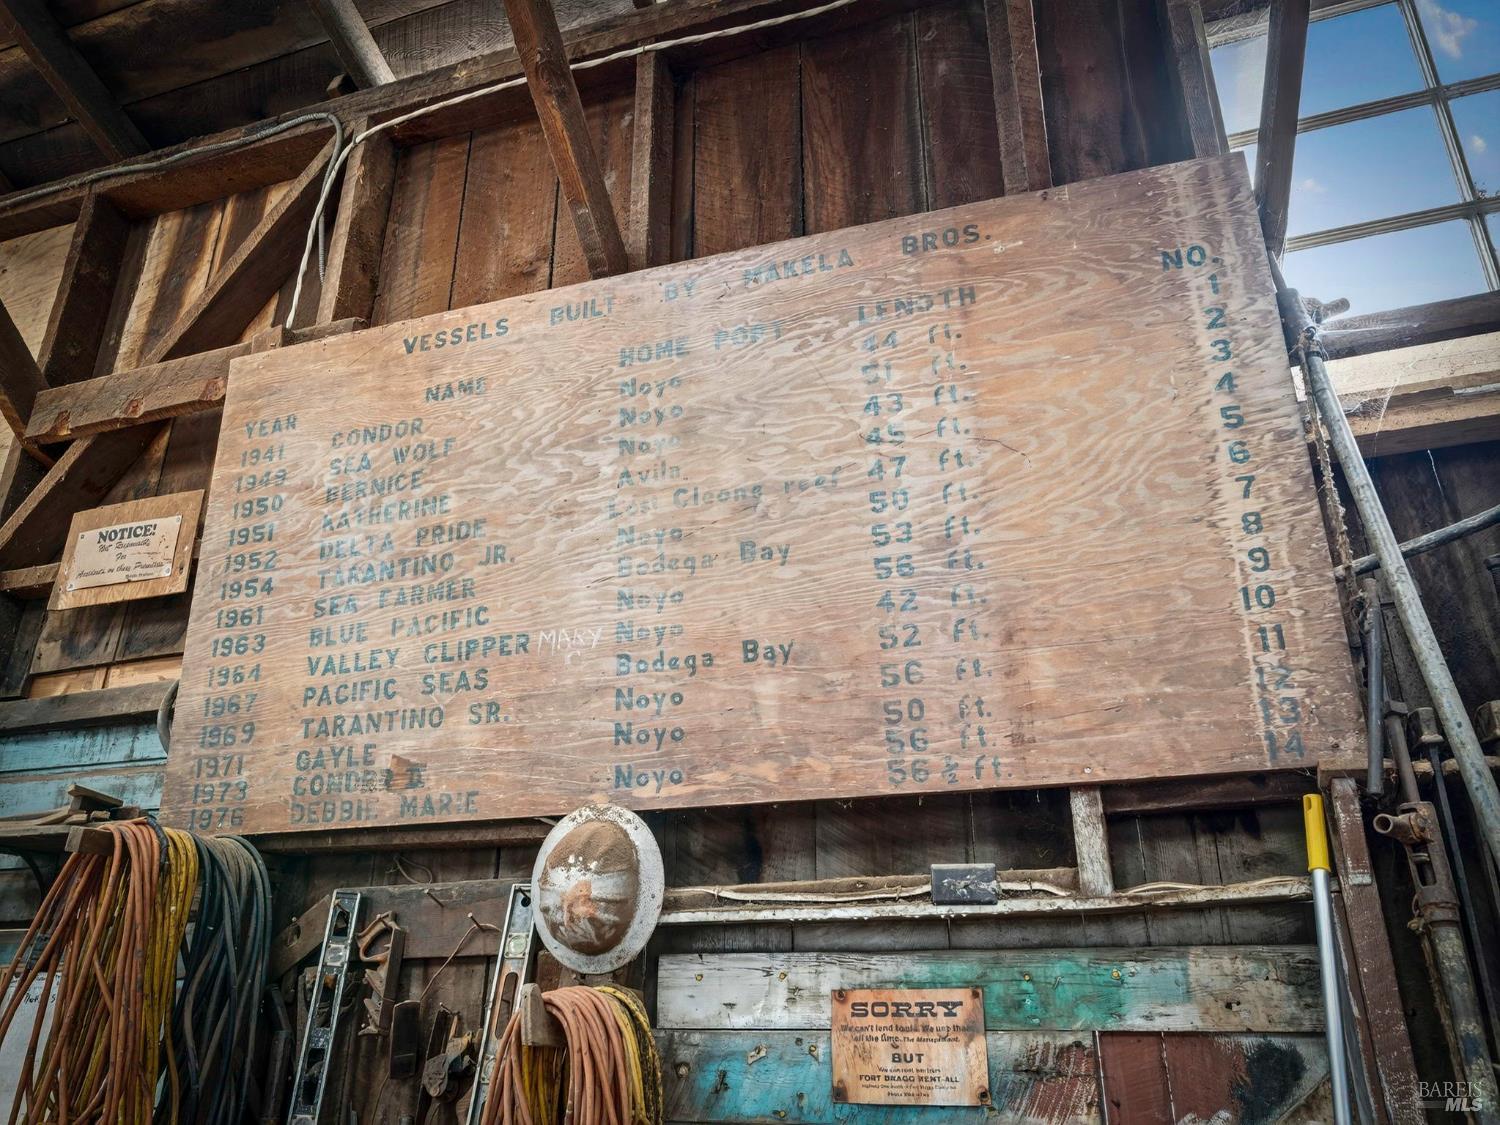 VESSELS BUILT BY MAKELA BROS.
YEAR NAME HOME PORT LENGTH NO.
1941 CONDOR Noyo 44 ft. 1
1949 SEA WOLF Noyo 51 ft. 2
1950 BERNICE Noyo 43 ft. 3
1951 KATHERINE Avila 45 ft. 4
1952 DELTA PRIDE Lost Cleong reef 47 ft. 5
1954 TARANTINO JR. Noyo 50 ft. 6
1961 SEA FARMER Bodega Bay 53 ft. 7
1963 BLUE PACIFIC Noyo 56 ft. 8
1964 VALLEY CLIPPER MARY C Noyo 42 ft. 9
1967 PACIFIC SEAS Bodega Bay 52 ft. 10
1969 TARANTINO SR. Noyo 56 ft. 11
1971 GAYLE Noyo 50 ft. 12
1973 CONDOR II 56 ft. 13
1976 DEBBIE MARIE Noyo 56 ½ ft. 14
NOTICE!
Not Responsible
For
Accidents on these Premises
SORRY
We can't lend tools. We use them
all the time. The Management.
BUT
You can rent them
FORT BRAGG RENT-ALL
BAREIS
MLS